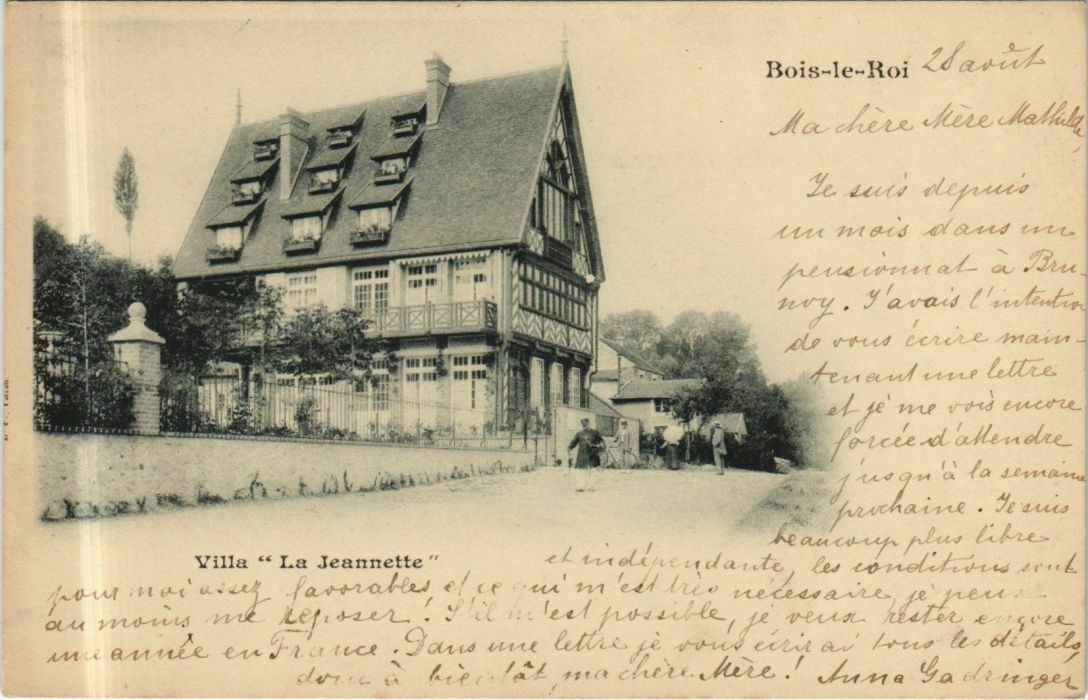 Bois-le-Roi 28 août
Ma chère Mère Mathilde,
Je suis depuis
un mois dans un
pensionnat à Bru-
noy. J'avais l'intention
de vous écrire main-
tenant une lettre
et je me vois encore
forcée d'attendre
jusqu'à la semaine
prochaine. Je suis
beaucoup plus libre
Villa "La Jeannette"
et indépendante, les conditions sont
pour moi assez favorables et ce qui m'est très nécessaire, je peux
au moins me reposer! S'il m'est possible, je veux rester encore
une année en France. Dans une lettre je vous écrirai tous les détails,
donc à bientôt, ma chère Mère! Anna Gadringer